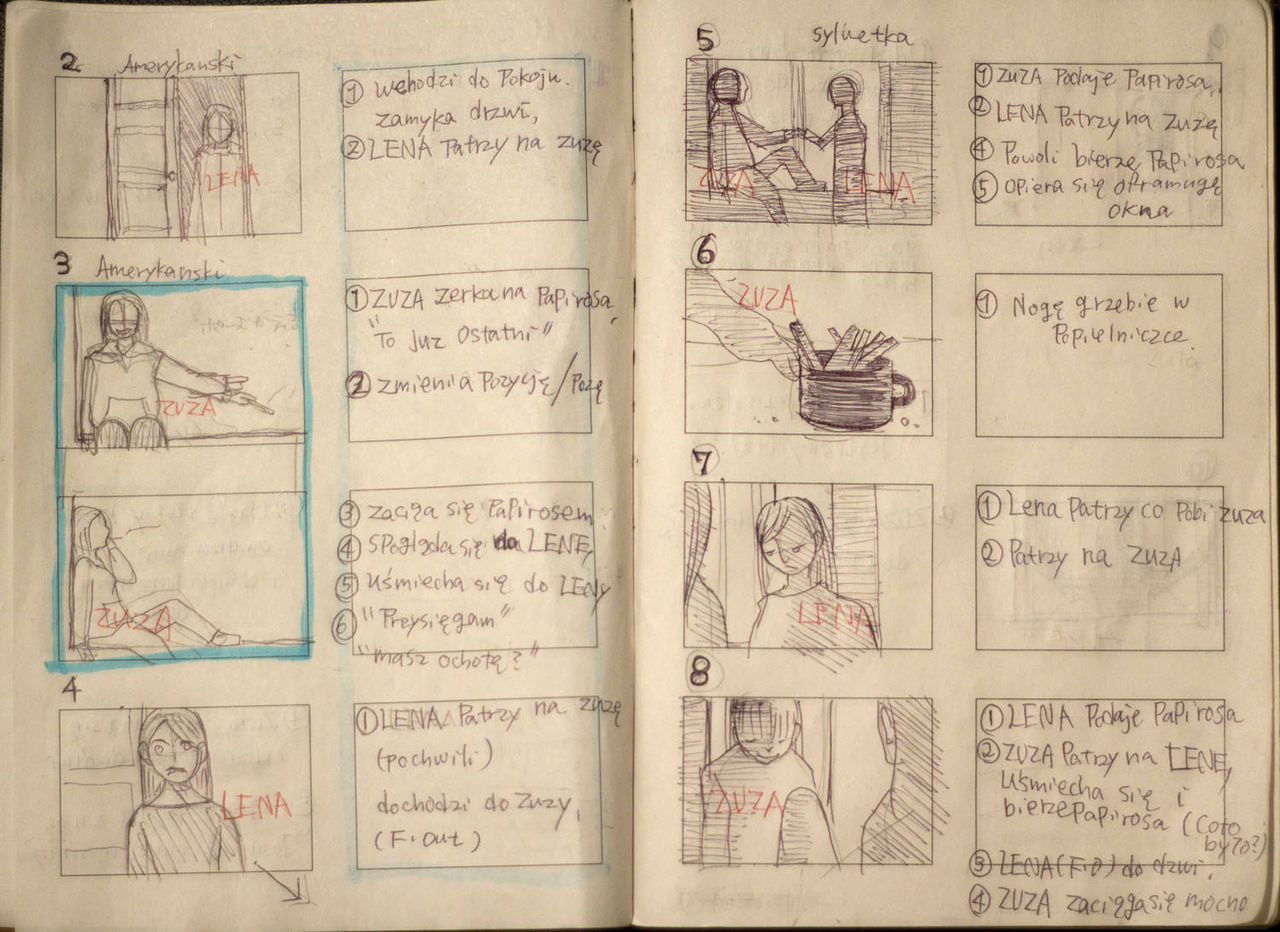 2
Amerykanski
LENA
① wchodzi do Pokoju.
zamyka drzwi,
② LENA Patrzy na zuzę
3
Amerykanski
ZUZA
① ZUZA zerka na Papirosa,
"To juz ostatni"
② zmienia Pozycję/Pozę
ZUZA
③ zaciga się PaPirosem.
④ SPoglgda się do LENE,
⑤ uśmiecha się do LENy
⑥ "Preysięgam"
"masz ochotę?"
4
LENA
① LENA Patrzy na zuzę
(pochwili)
dochodzi do Zuzy,
(F. Out)
5
sylwetka
ZUZA
LENA
① ZUZA Podaję PaPirosa,
② LENA Patrzy na Zuzę
④ Powoli bierzę PaPirosa
⑤ opiera się oframugę
okna
6
ZUZA
① Nogę grzebie w
Popielniczce.
7
LENA
① Lena Patrzy co Pobi zuza
② Patrzy na ZUZA
8
ZUZA
① LENA Podaję PaPirosa
② ZUZA Patrzy na LENE,
Uśmiecha się i
bierzePaPirosa (Coto
było?)
③ LENA (F.O) do dzwi.
④ ZUZA zaciągasię mocno